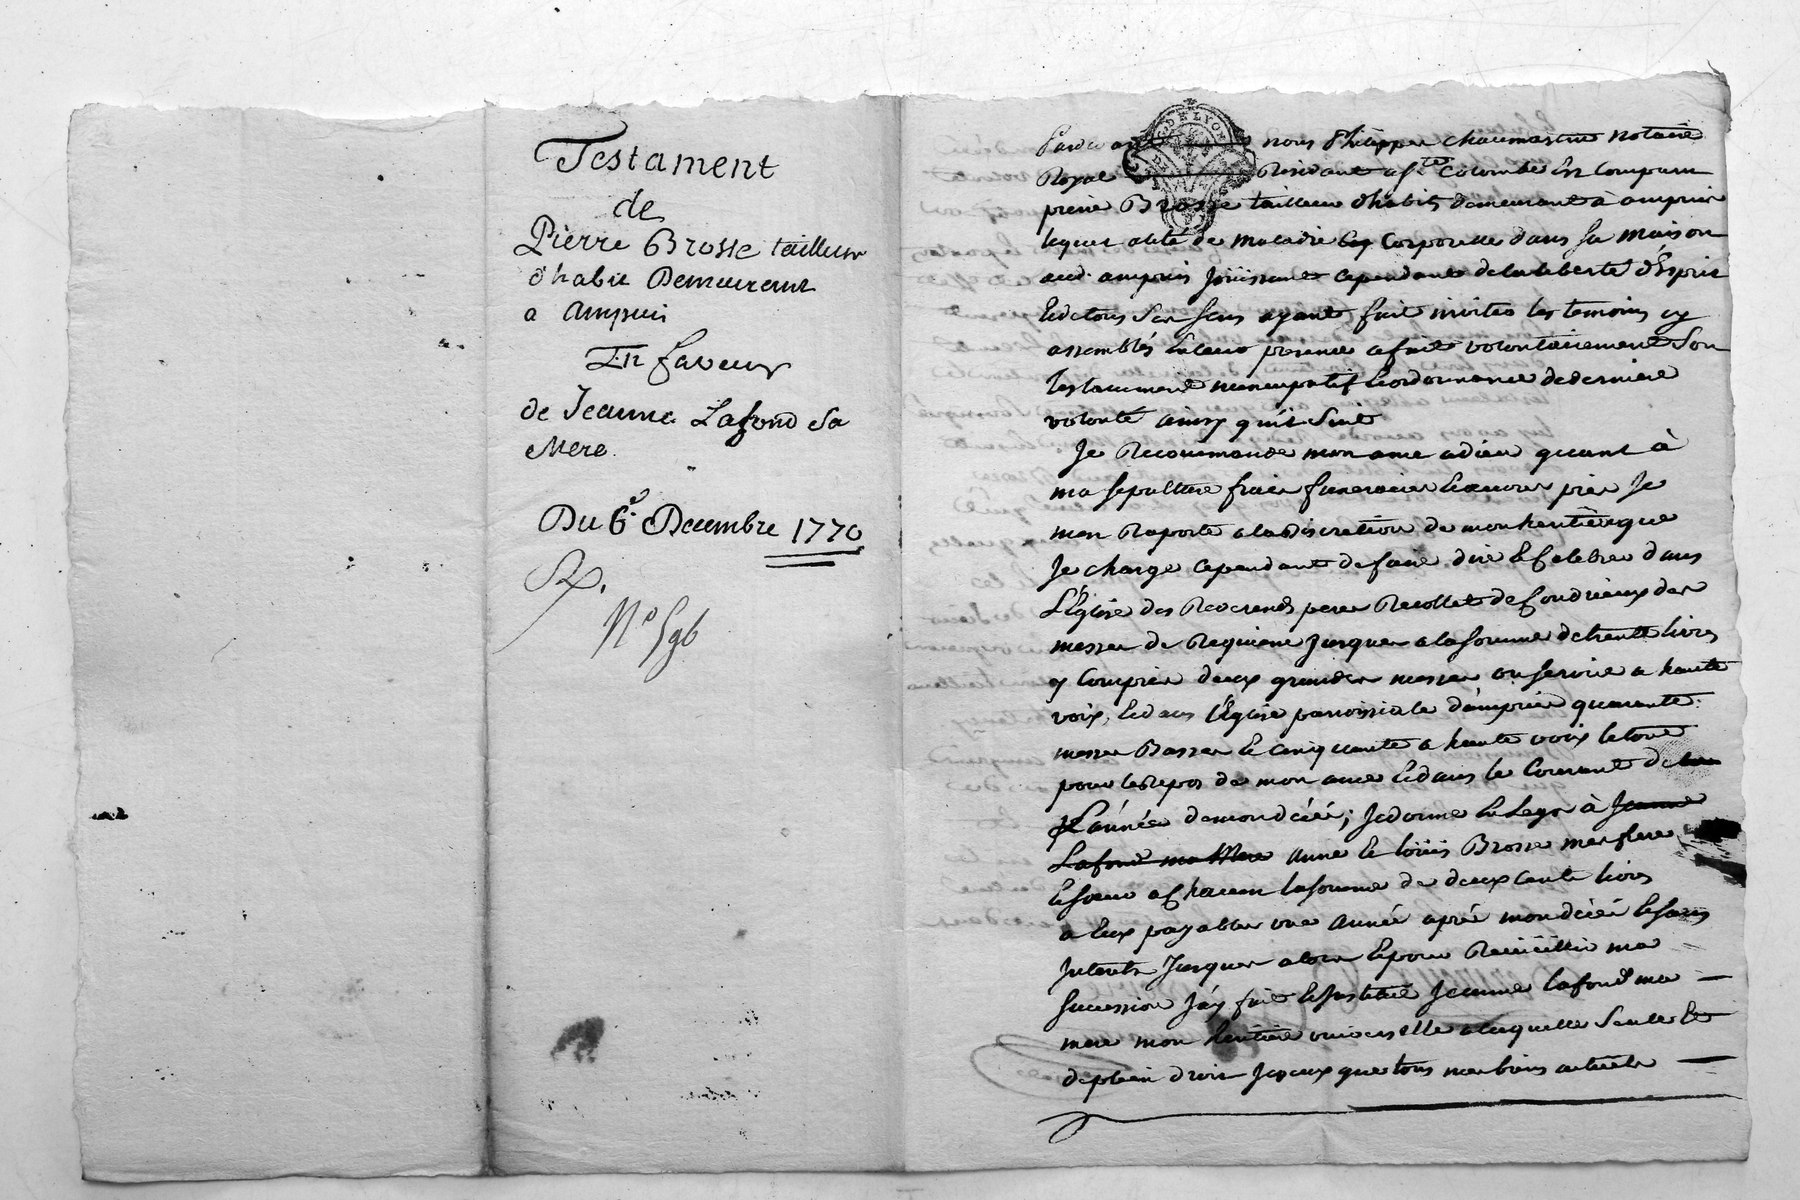 Testament
de
Pierre Brosse tailleur
d'habit Demeurant
a Ampuis
En faveur
de Jeanne Lafond Sa
Mere
Du 6.e Decembre 1770
N° 596
DE LYON
Pardevant nous Philippe Chaumartin Notaire
Royal Residant a Ste Colombe En Comparu
pierre Brosse tailleur d'habits demeurant à ampuis
lequel alité de maladie Corporelle dans sa maison
aud. ampuis Joüissant cependant de la liberté d'Esprit
Et de tous Ses sens ayant fait inviter les temoins cy
assemblés En leur presence a fait volontairement Son
testament nuncupatif & ordonnance de derniere
volonté ainsy quil Suit
Je Recommande mon ame a dieu quant à
ma sepulture fraix funeraires & œuvres pies Je
men Raporte a la discretion de mon heritiere que
Je charge cependant de faire dire & Celebrer dans
L'Eglise des Reverends peres Recollets de Condrieux des
messes de Requiem Jusques a la somme de trente livres
y Compris deux grandes messes ou service a haute
voix, Et dans l'Eglise paroissiale d'ampuis quarante
messes Basses & cinquante a haute voix le tout
pour le repos de mon ame Et dans le Courant de
L'année de mon décés; Je donne & Legue à Jeanne
Lafond ma Mere Anne & loüis Brosse mes frere
& soeur a Chacun la somme de deux cents livres
a Eux payables une Année aprés mon décés & sans
Interets Jusques alors & pour Recüeillir ma
succession J'ay fait & Institué Jeanne Lafond ma
mere mon heritiere universelle a laquelle Seule &
de plein droit Je veux que tous mes biens actuels